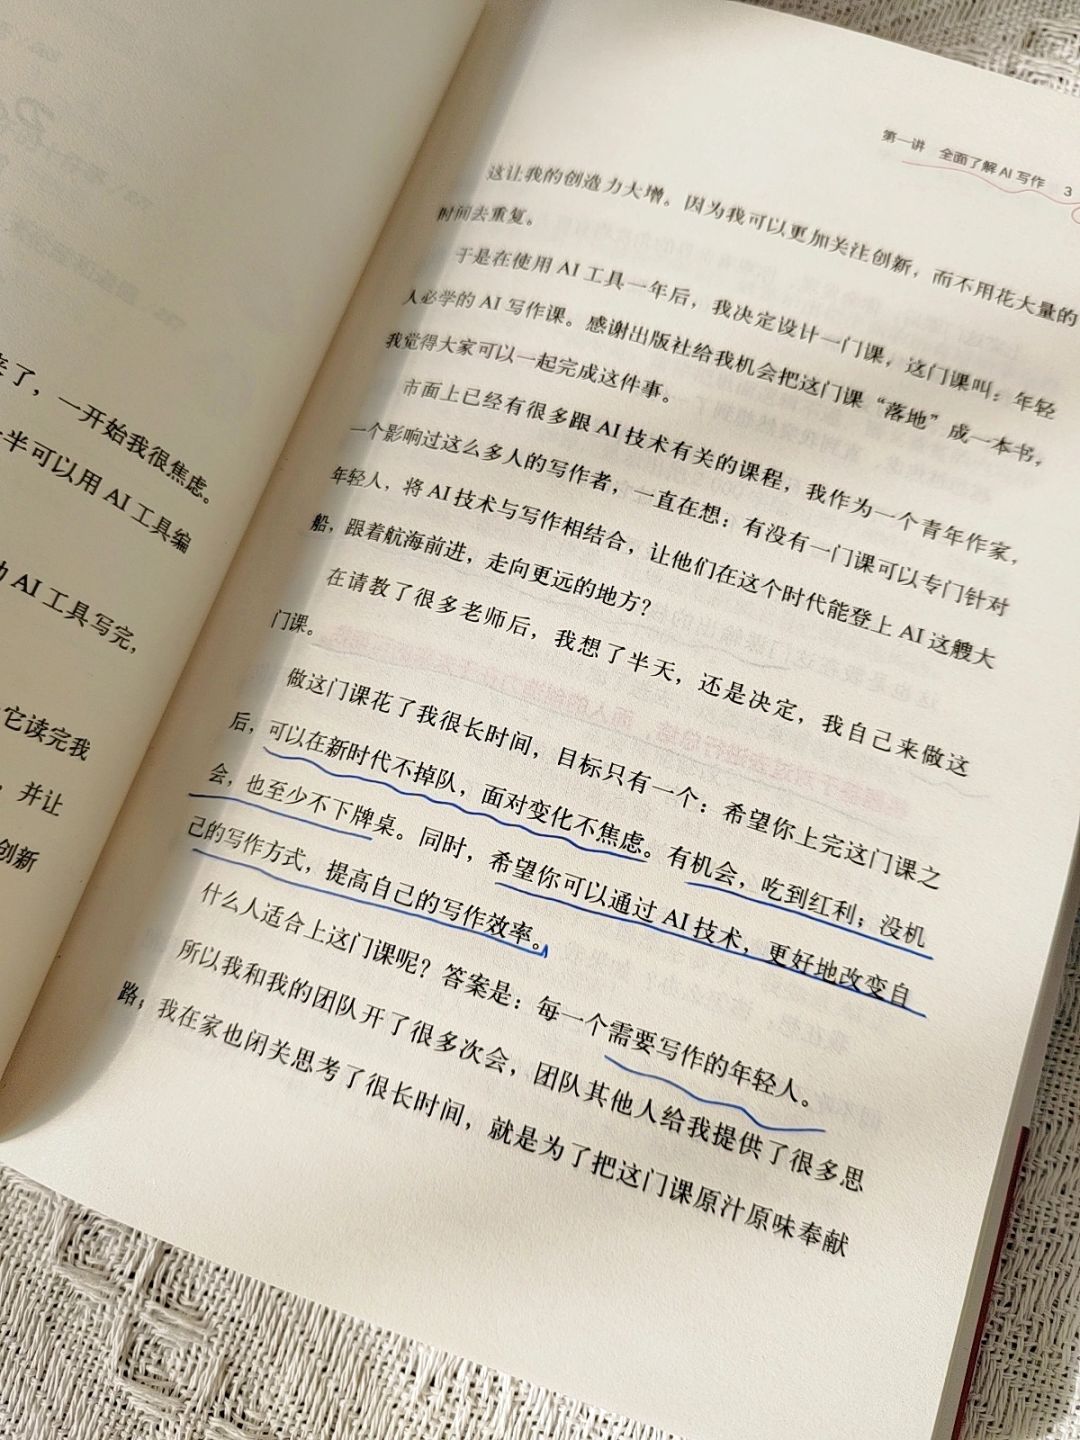 来了，一开始我很焦虑。
一半可以用 AI 工具编
AI 工具写完，
它读完我
，并让
创新
第一讲 全面了解 AI 写作 3
这让我的创造力大增。因为我可以更加关注创新，而不用花大量的
时间去重复。
于是在使用 AI 工具一年后，我决定设计一门课，这门课叫：年轻
人必学的 AI 写作课。感谢出版社给我机会把这门课“落地”成一本书，
我觉得大家可以一起完成这件事。
市面上已经有很多跟 AI 技术有关的课程，我作为一个青年作家，
一个影响过这么多人的写作者，一直在想：有没有一门课可以专门针对
年轻人，将 AI 技术与写作相结合，让他们在这个时代能登上 AI 这艘大
船，跟着航海前进，走向更远的地方？
在请教了很多老师后，我想了半天，还是决定，我自己来做这
门课。
做这门课花了我很长时间，目标只有一个：希望你上完这门课之
后，可以在新时代不掉队，面对变化不焦虑。有机会，吃到红利；没机
会，也至少不下牌桌。同时，希望你可以通过 AI 技术，更好地改变自
己的写作方式，提高自己的写作效率。
什么人适合上这门课呢？答案是：每一个需要写作的年轻人。
所以我和我的团队开了很多次会，团队其他人给我提供了很多思
路；我在家也闭关思考了很长时间，就是为了把这门课原汁原味奉献